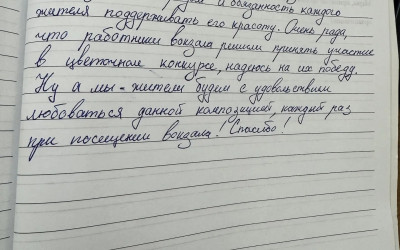 и обязанность каждого
жителя поддерживать его красоту. Очень рада,
что работники вокзала решили принять участие
в цветочном конкурсе, надеюсь на их победу.
Ну а мы - жители будем с удовольствием
любоваться данной композицией, каждый раз
при посещении вокзала! Спасибо!